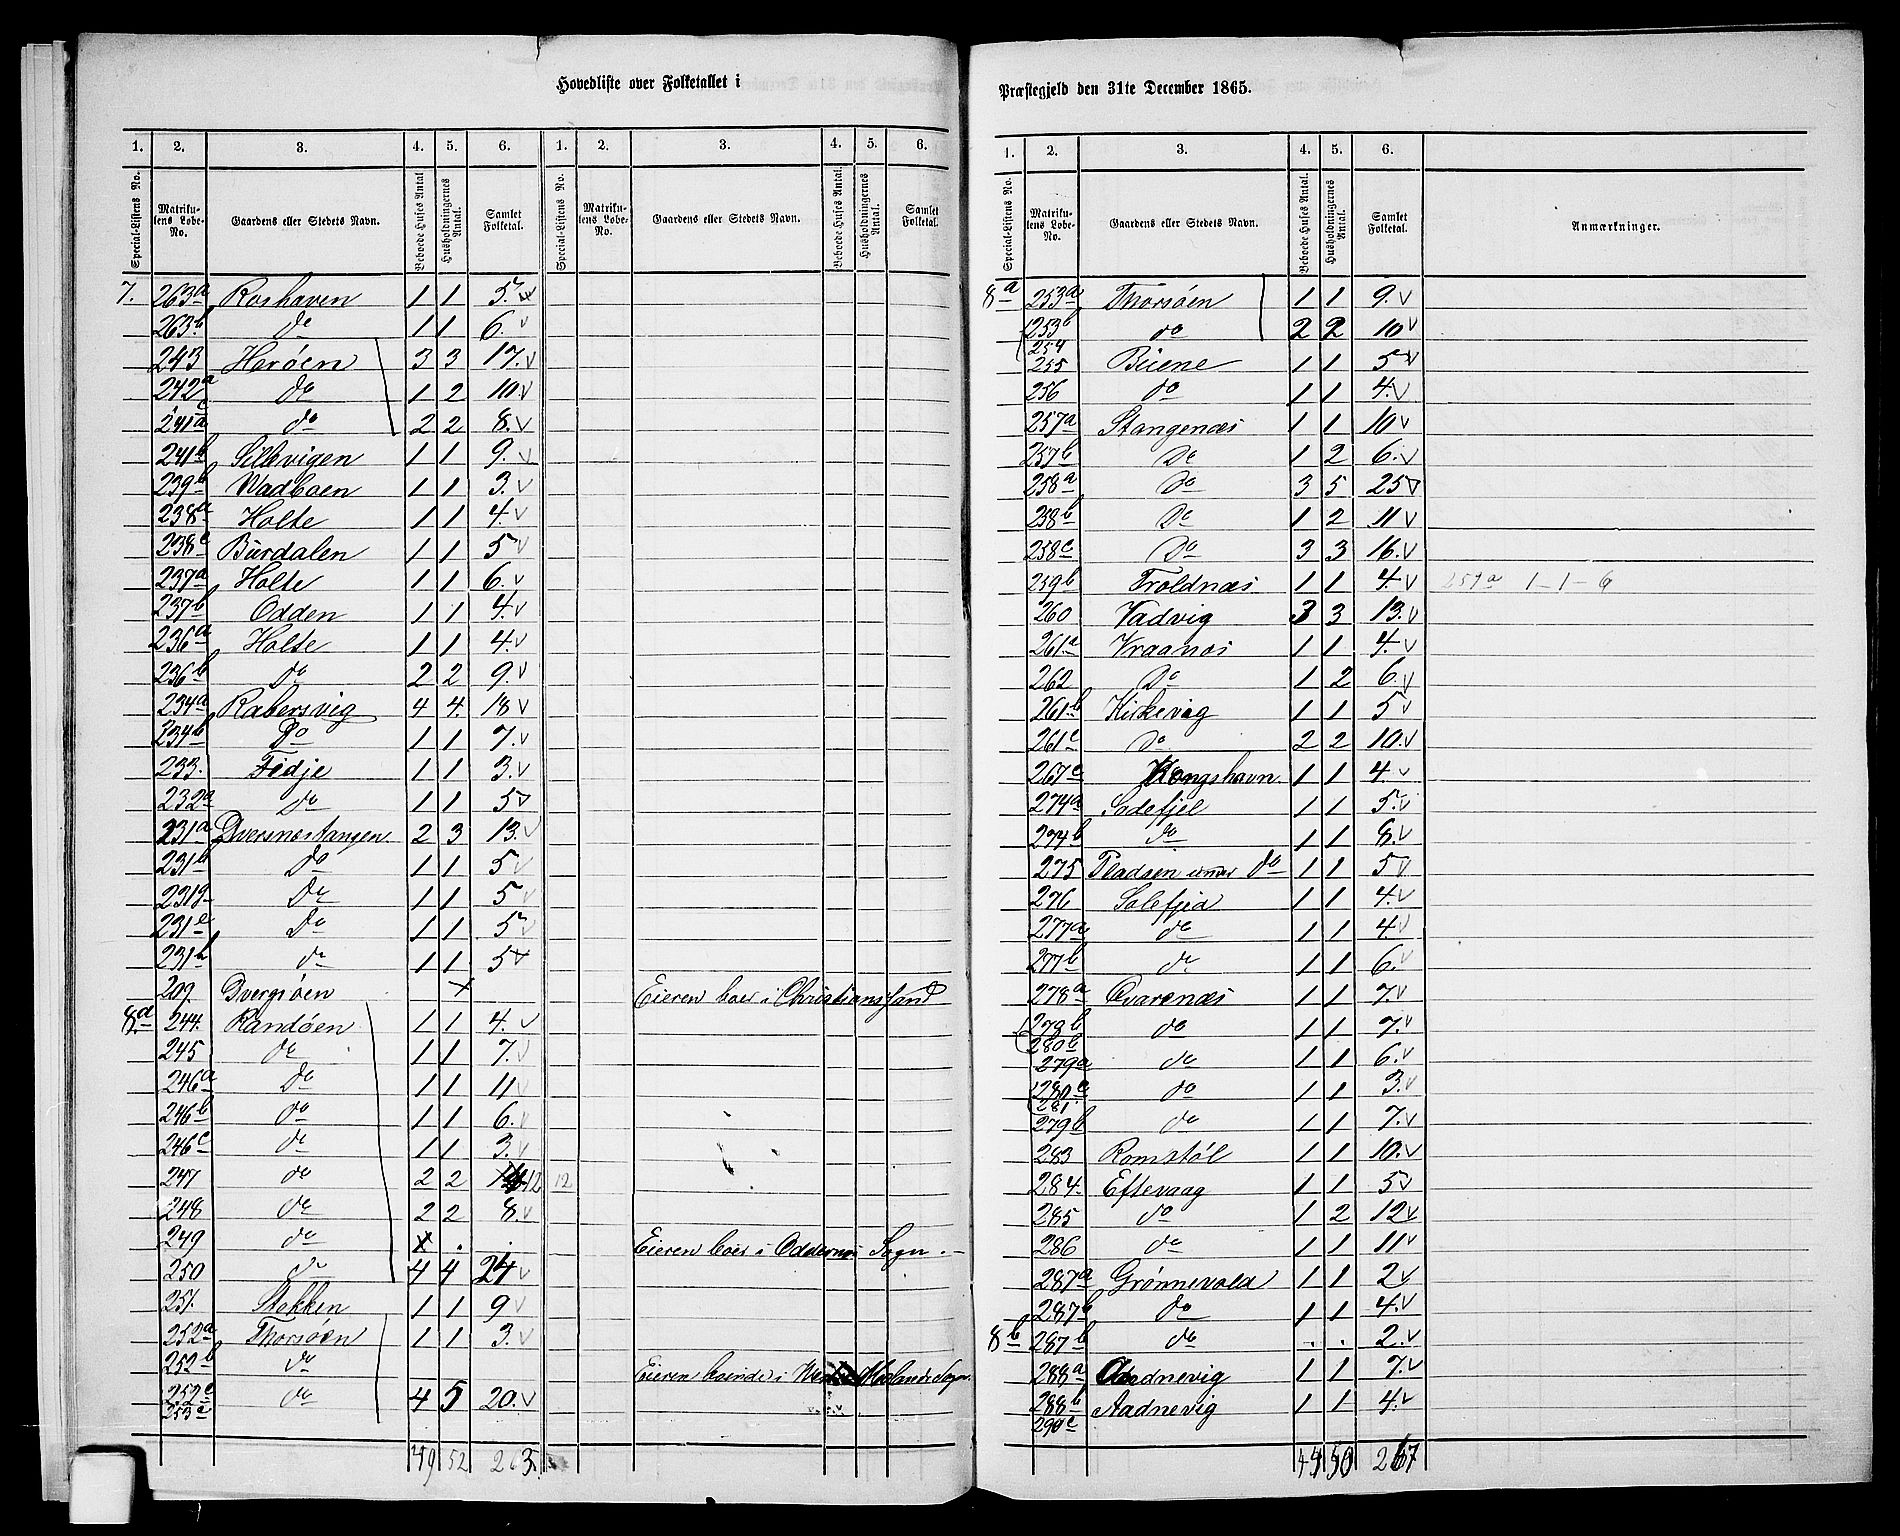 Hovedliste over Folketallet i
Præstegjeld den 31te December 1865.
1. 2. 3. 4. 5. 6. 1. 2. 3. 4. 5. 6.
Special-Listens No. Matrikulens Løbe-No. Gaardens eller Stedets Navn. Beboede Huses Antal Husholdningernes Antal. Samlet Folketal. Special-Listens No. Matrikulens Løbe-No. Gaardens eller Stedets Navn. Beboede Huses Antal. Husholdningernes Antal. Samlet Folketal.
7. 263a Roshaven 1 1 5.
263b do 1 1 6.
243 Herøen 3 3 17.
242a do 1 2 10
241a do 2 2 8.
241b Sillevigen 1 1 9.
239b Wadboen 1 1 3.
238a Holte 1 1 4.
238c Burdalen 1 1 5
237a Holte 1 1 6.
237b Odden 1 1 4.
236a Holte 1 1 4.
236b Do 2 2 9.
234a Rabersvig 4 4. 18
234b Do 1 1 7.
233. Fidje 1 1 3.
232a do 1 1 5
231a Dversnæstangen 2 3 13.
231b Do 1 1 5
231g Do 1 1 5
231e Do 1 1 5
231h do 1 1 5
209. Dvergsøen x Eieren boer i Christianssand
8d 244. Randøen 1 1 4.
245 do 1 1 7.
246a Do 1 1 11
246b do 1 1 6.
246c do 1 1 3.
247 do 2 2 12 12
248 do 2 2 8.
249 do x . . Eieren boer i Oddernes Sogn.
250 do 4 4 24
251. Stokken 1 1 9
252a Thorsøen 1 1 3.
252b do Eieren boende i Mælands Sogn.
252c 253c do 4 5 20.
49 52 263.
1. 2. 3. 4. 5. 6.
Special-Listens No. Matrikulens Løbe-No. Gaardens eller Stedets Navn. Beboede Huses Antal. Husholdningernes Antal. Samlet Folketal. Anmærkninger.
8a 253a Thorsøen 1 1 9.
253b 254 do 2 2 10
255 Beiene 1 1 5
256 do 1 1 4.
257a Stangenæs 1 1 10
257b Do 1 2 6.
258a Do 3 5 25
258b Do 1 2 11
258c Do 3 3 16.
259b Troldnæs 1 1 4. 259a 1 - 1 - 6
260 Vadvig 3 3 13.
261a Kraanæs 1 1 4.
262 Do 1 2 6.
261b Kirkevig 1 1 5
261c Do 2 2 10.
267c Kongshavn. 1 1 4.
274a Sodefjel 1 1 5.
274b do 1 1 8.
275 Pladsen under do 1 1 5
276 Solefjed 1 1 4.
277a do 1 1 4
277b do 1 1 6.
278a Qvarenæs 1 1 7.
278b 280b do 1 1 7.
279a do 1 1 6.
280c 281. do 1 1 3.
279b do 1 1 7.
283 Romstøl 1 1 10.
284. Eftevaag 1 1 5
285 do 1 2 12
286 do 1 1 11
287a Grønnevold 1 1 2
287b do 1 1 4.
8b 287b do . . 2.
288a Aadnevig 1 1 7.
288b 290c Aadnevig 1 1 4.
50 267